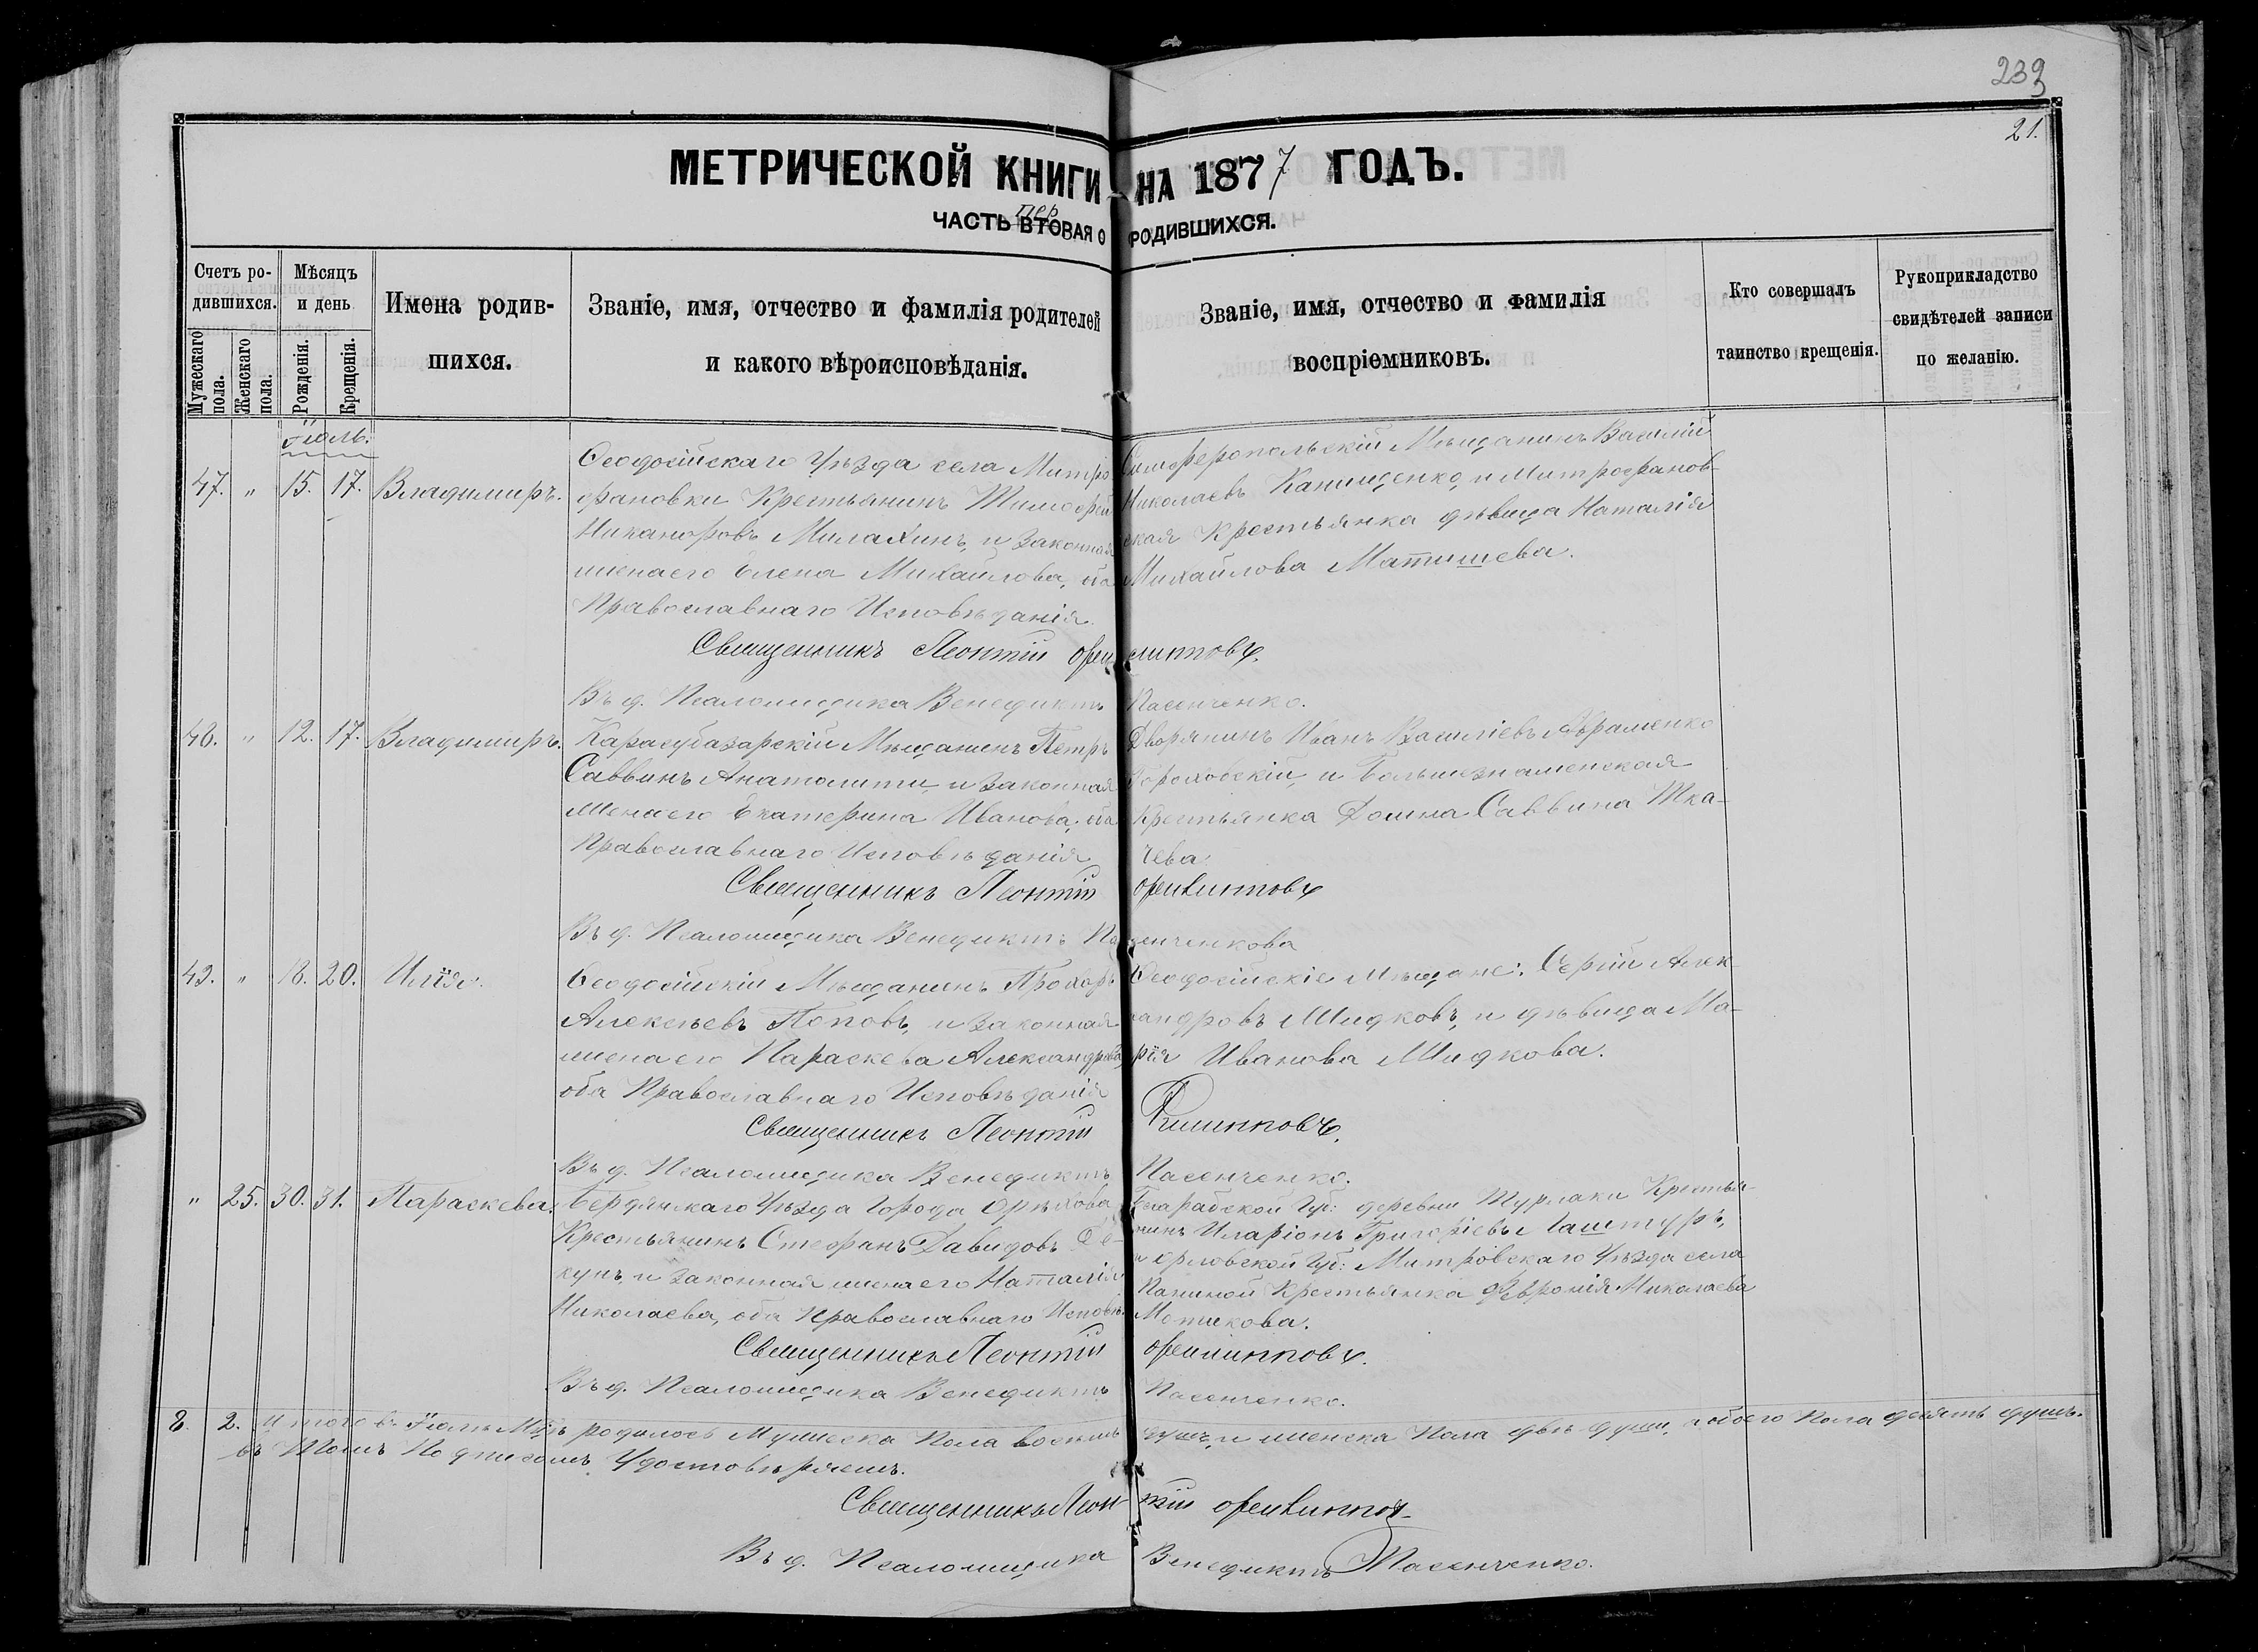 239
21.
МЕТРИЧЕСКОЙ КНИГИ НА 1877 ГОДЪ.
пер
ЧАСТЬ ВТОРАЯ О РОДИВШИХСЯ.
Счетъ ро-
дившихся.
Мужескаго пола.
Женскаго пола.
Мѣсяцъ
и день
Рожденія.
Крещенія.
Имена родив-
шихся.
Званіе, имя, отчество и фамилія родителей
и какого вѣроисповѣданія.
Званіе, имя, отчество и фамилія
воспріемниковъ.
Кто совершалъ
таинство крещенія.
Рукоприкладство
свидѣтелей записи
по желанію.
Іюль.
47. " 15. 17. Владимиръ.
Ѳеодосійскаго Уѣзда села Митро
фановки Крестьянинъ Тимофей
Никаноровъ Милахинъ, и законная
жена его Елена Михайлова, оба
Православнаго Исповѣданія.
Симферопольскій Мѣщанинъ Василій
Николаевъ Канищенко, и Митрофанов-
ская Крестьянка дѣвица Наталія
Михайлова Матишева.
Священникъ Леонтій Филипповъ.
Въ д. Псаломщика Венедиктъ Пасенченко.
48. " 12. 17. Владимиръ.
Карасубазарскій Мѣщанинъ Петръ
Саввинъ Анатолити, и законная
жена его Екатерина Иванова, оба
Православнаго Исповѣданія
Дворянинъ Иванъ Василіевъ Авраменко
Гороховскій, и Большезнаменская
Крестьянка Домна Саввина Тка-
чева.
Священникъ Леонтій Филипповъ
Въ д. Псаломщика Венедиктъ Пасенченкова
49. " 18. 20. Илія.
Ѳеодосійскій Мѣщанинъ Прохоръ
Алексѣевъ Поповъ, и законная
жена его Параскева Александрова,
оба Православнаго Исповѣданія
Ѳеодосійскіе Мѣщане: Сергій Алек-
сандровъ Шидковъ, и дѣвица Ма-
рія Иванова Шидкова.
Священникъ Леонтій Филипповъ.
Въ д. Псаломщика Венедиктъ Пасенченко.
" 25. 30. 31. Параскева.
Бердянскаго Уѣзда Города Орѣхова
Крестьянинъ Стефанъ Давидовъ
и законная жена его Наталія
Николаева, оба Православнаго Исповѣ.
Бесарабской Губ: деревни Турлаки Крестья-
нинъ Иларіонъ Григоріевъ Гаштуръ,
и Орловской Губ: Митровскаго Уѣзда села
Паниной Крестьянка Февронія Николаева
Мотикова.
Священникъ Леонтій Филипповъ.
Въ д. Псаломщика Венедиктъ Пасенченко.
8. 2. Итого въ Іюлѣ Мцѣ родилось Мужеска Пола восемь душъ, и женска Пола двѣ души, а обоего Пола десять душъ.
въ Томъ Подписомъ Удостовѣряемъ.
Священникъ Леонтій Филипповъ
Въ д. Псаломщика Венедиктъ Пасенченко.